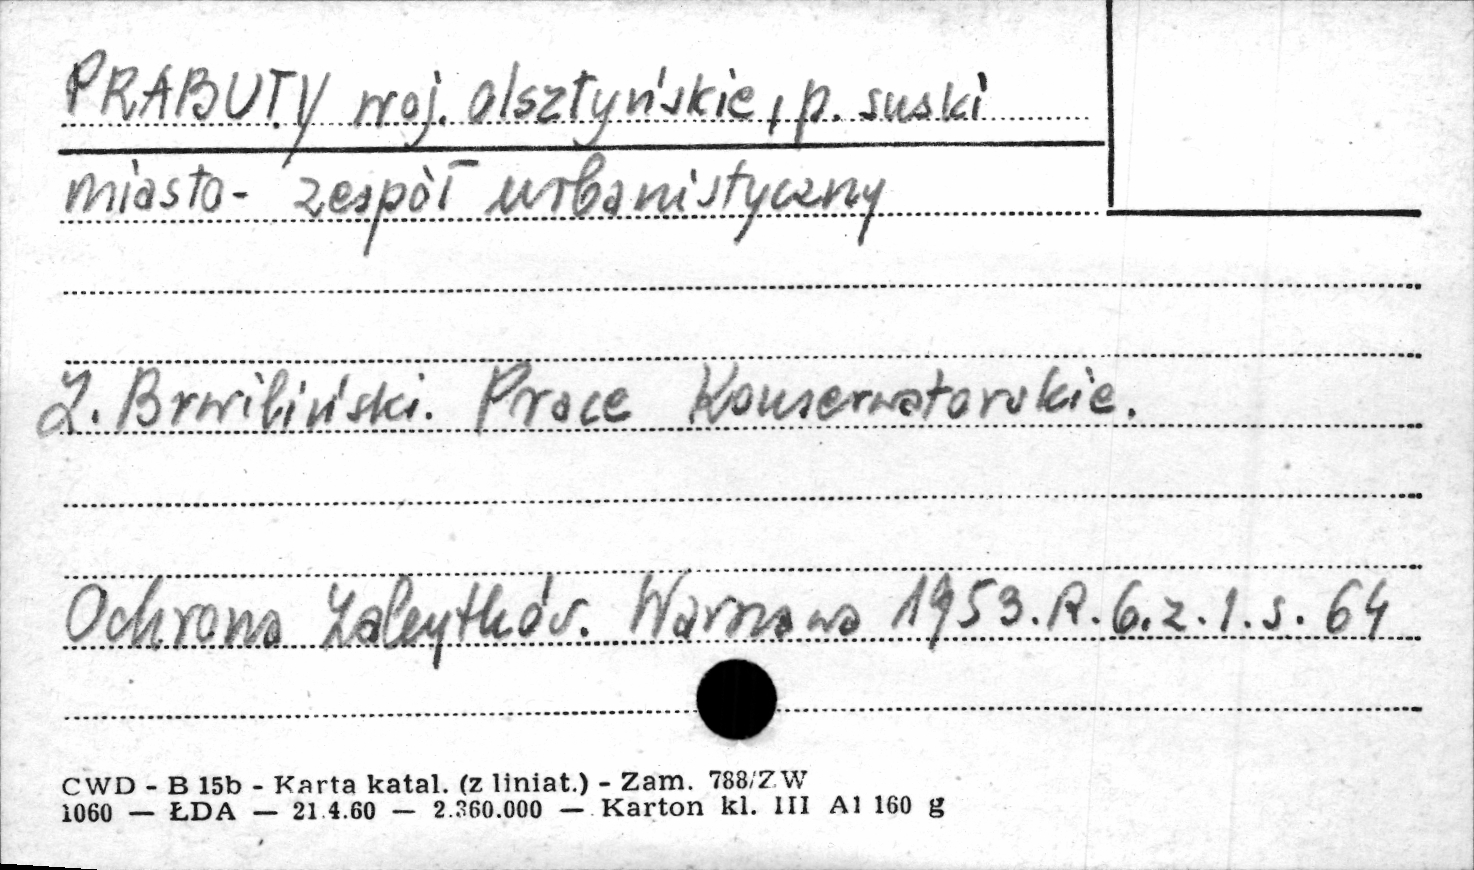 PRABUTY woj. olsztyńskie, p. suski
miasto - zespół urbanistyczny
Z. Brwiliński. Prace Konserwatorskie.
Ochrona Zabytków. Warszawa 1953. R. 6. z. 1. s. 64
CWD - B 15b - Karta katal. (z liniat.) - Zam. 788/ZW
1060 — ŁDA — 21.4.60 — 2.360.000 — Karton kl. III A1 160 g